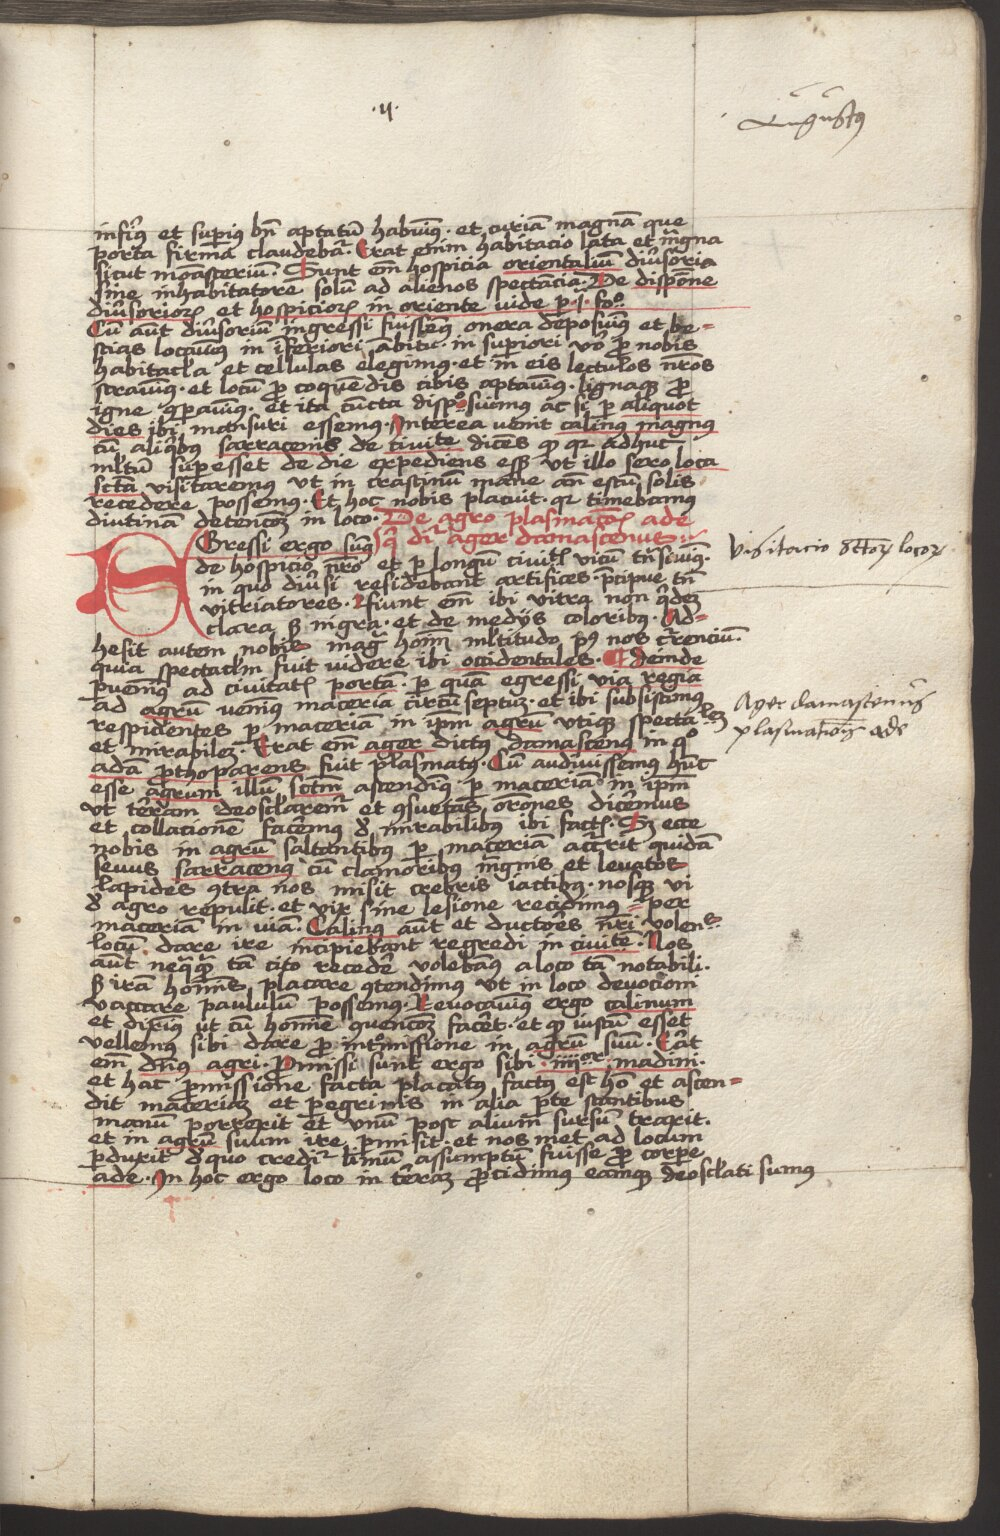 .ij.
Augustus
inferius et superius bn̄ aptatū habuim9 · et curiā magnā que
porta firmā claudebat̄ · Erat enim habitacio lata et māgna
sicut monasterium · Sunt em̄ hospicia orientaliū diu̾soria
sine inhabitatore solum ad alienos spectancia · De dispoñe
diu̾sorioꝝ et hospicioꝝ in oriente vide p. j. fo.
Cū aūt diu̾soriū ingressi fuissem9 onera deposuim9 et be=
stias locauim9 in īferiori ābitu · in superiori v̊o ꝓ nobis
habitacl̄a et cellulas elegim9 · et in eis lectulos nr̄os
strauim9 · et locū ꝓ coquendis cibis aptauim9 · lignaqꝫ ꝓ
igne ꝯparauim9 · et ita cūcta disposuim9 ac si ꝑ aliquot
dies ibi mansuri essemus · Interea venit calin9 magnus
cū aliq̄bus sarracenis de ciuite dicēs ꝙ qꝛ adhuc
ml̄tū superesset de die expediens esset vt illo sero loca
sctā visitaremus vt in crastinū mane añ estū solis
recedere possem9 · Et hoc nobis placuit · qꝛ timebam9
diutinā detencōꝫ in loco · De agro plasmacōis ade
Egressi ergo sum9 q̄ dr̄ ager damascenus
de hospicio nr̄o et ꝑ longū ciuitat̄ vicū trāsiuim9 ·
in quo diu̾si residebant artifices · p̄cipue tn̄
vitriatores · fiunt em̄ ibi vitra non q̄deꝫ
clara sꝫ nigra · et de medijs coloribꝫ · Ad=
hesit autem nobis mag̅ hoīm ml̄titudo p9 nos cr̄renciū ·
quia spectacl̄m fuit videre ibi occidentales · Deinde
ꝑuenim9 ad ciuitat̄ portā · ꝑ quā egressi via regia
ad agrū venim9 maceria circū septuꝫ · et ibi subsistim9
respicientes ꝑ maceriā in ipm̄ agrū vtiqꝫ specta=bileꝫ
et mirabileꝫ · Erat em̄ ager dictus damascenus in q̊
adā ꝓthoparens fuit plasmatus · Cū audiuissemus hūc
esse agrum illū sctm̄ ascendim9 ꝑ maceriā in ipm̄
vt terram deosclarem̅ et ꝯsuetas or̄ones dicerem9
et collacionē facem9 de mirabilibus ibi factis · Sꝫ ecce
nobis in agrū saltantibus ꝑ maceriā accr̄rit quidā
seuus sarracenus cū clamoribus māgnis et leuatos
lapides ꝯtra nos misit crebris iactibus · nosqꝫ vi
de agro repulit · et vix sine lesione recidimus = per
maceriā in viā · Calinus aūt et ductores nr̄i volen=
locū dare ire incipiebant regredi in ciuitē · Nos
aūt neq̄q̄ tā cito recedē volebam9 a loco tā notabili ·
sꝫ irā hoīnis placare ꝯtendim9 vt in loco deuocioni
vaccare paululū possem9 · Reuocauim9 ergo calinum
et diximus ut cū homīe ꝯuencōꝫ facēt · et ꝙ iustū esset
vellemus sibi dare ꝓ intromissione in agrū suū · Erat
em̄ dn̄us agri · ꝓmissi sunt ergo sibi · iiiior · madini ·
et hac ꝓmissione facta placatus factus est ho et ascen=
dit maceriaꝫ et ꝑegrinis in alia ꝑte stantibus
manū porrexit et vnū post alium sursū traxit ·
et in agrū suum ire ꝑmisit · et nos met ad locum
ꝑduxit de quo credit̅ limū assumptū fuisse ꝓ corpe
ade · In hoc ergo loco in terraꝫ ꝓcidimus eamqꝫ deosclati sumus
Visitacio sctoꝝ locoꝝ
Ager damascenus
plasmationis ade